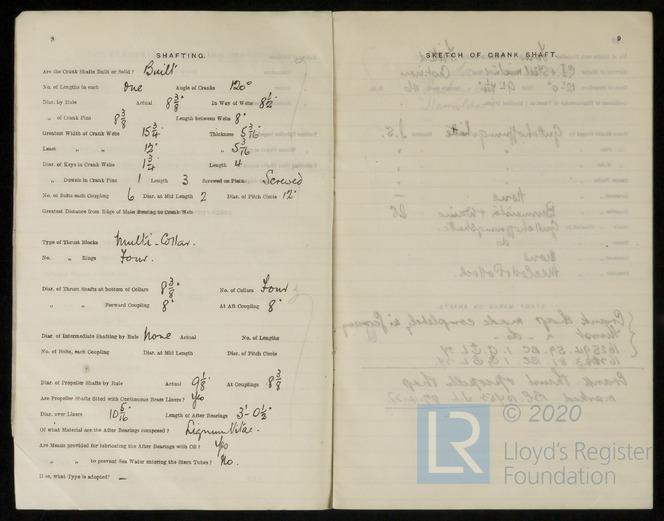 8
SHAFTING.
Are the Crank Shafts Built or Solid? Built
No. of Lengths in each One Angle of Cranks 120°
Diar. by Rule Actual 8 3/8" In Way of Webs 8 1/2"
" of Crank Pins 8 3/8 Length between Webs 8"
Greatest Width of Crank Webs 15 3/4" Thickness 5 3/16"
Least " " 12" " 5 3/16
Diar. of Keys in Crank Webs 1 3/4 Length 4
" Dowels in Crank Pins 1 Length 3 Screwed or Plain Screwed
No. of Bolts each Coupling 6 Diar. at Mid Length 2 Diar. of Pitch Circle 12"
Greatest Distance from Edge of Main Bearing to Crank Web
Type of Thrust Blocks Multi-Collar.
No. " Rings Four.
Diar. of Thrust Shafts at bottom of Collars 8 3/8" No. of Collars Four
" " Forward Coupling 8" At Aft Coupling 8"
Diar. of Intermediate Shafting by Rule None Actual No. of Lengths
No. of Bolts, each Coupling Diar. at Mid Length Diar. of Pitch Circle
Diar. of Propeller Shafts by Rule Actual 9 1/8" At Couplings 8 3/8"
Are Propeller Shafts fitted with Continuous Brass Liners? Yes
Diar. over Liners 10 5/16 Length of After Bearings 3'-0 1/2"
Of what Material are the After Bearings composed? Lignum Vitae.
Are Means provided for lubricating the After Bearings with Oil? Yes
" " to prevent Sea Water entering the Stern Tubes? No.
If so, what Type is adopted? —
9
SKETCH OF CRANK SHAFT.
© 2020
LR
Lloyd's Register
Foundation